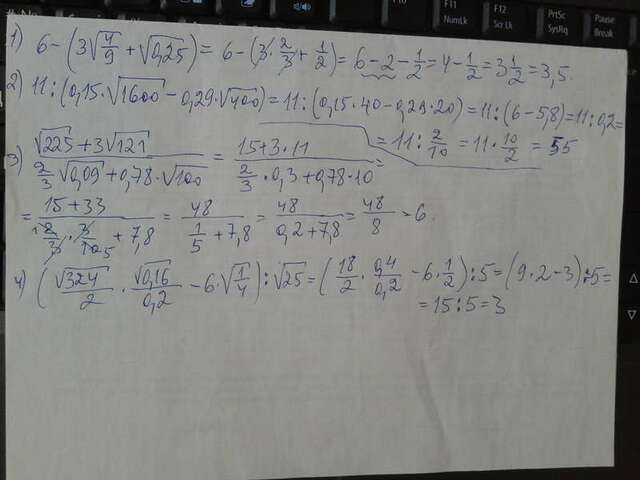 F11
NumLk
F12
Scr Lk
PrtSc
SysRq
Pause
Break
1) 6-(3√4/9+√0,25)=6-(3·2/3+1/2)=6-2-1/2=4-1/2=3 1/2=3,5.
2) 11:(0,15·√1600-0,29·√400)=11:(0,15·40-0,29·20)=11:(6-5,8)=11:0,2=
=11:2/10=11·10/2=55
3) (√225+3√121)/(2/3√0,09+0,78·√100)=(15+3·11)/(2/3·0,3+0,78·10)=
=(15+33)/(2/3·3/10+7,8)=48/(1/5+7,8)=48/(0,2+7,8)=48/8=6.
4) (√324/2·√0,16/0,2-6·√1/4):√25=(18/2·0,4/0,2-6·1/2):5=(9·2-3):5=
=15:5=3